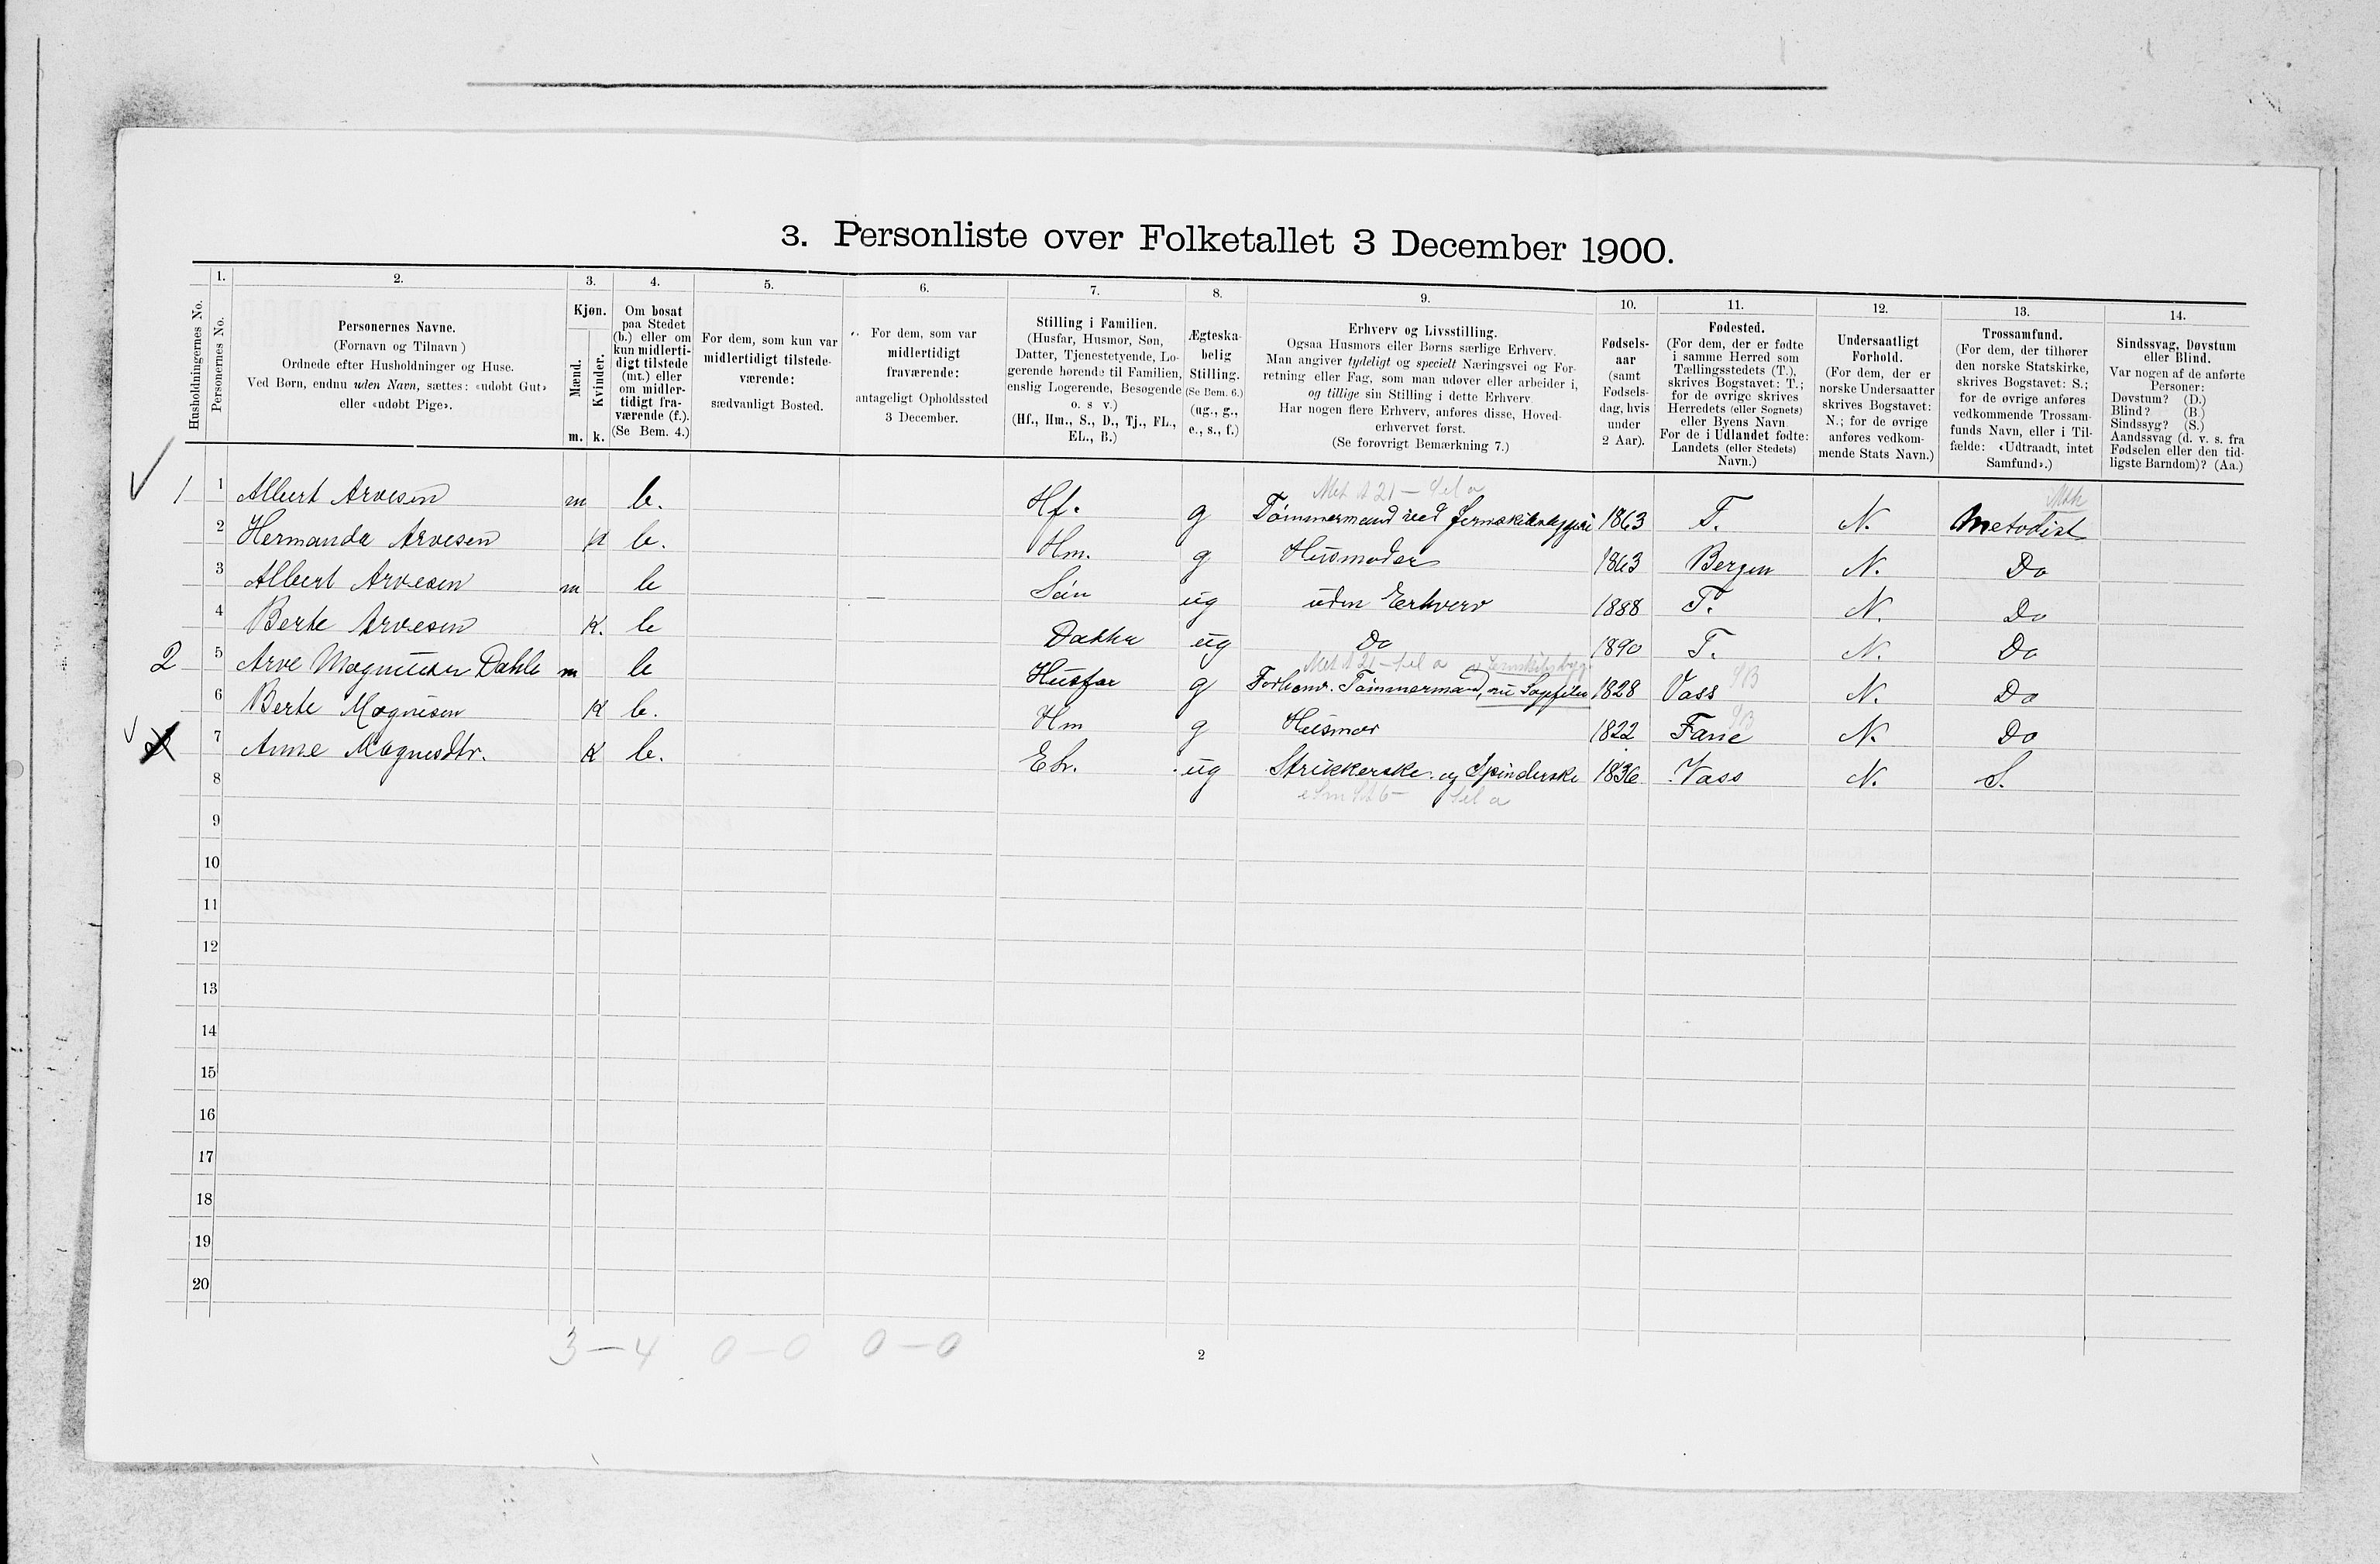 3. Personliste over Folketallet 3 December 1900.
1. 2. 3. 4. 5. 6. 7. 8. 9. 10. 11. 12. 13. 14.
Husholdningernes No.
Personernes No.
Personernes Navne.
(Fornavn og Tilnavn)
Ordnede efter Husholdninger og Huse.
Ved Børn, endnu uden Navn, sættes: «udøbt Gut»
eller «udøbt Pige».
Kjøn.
Mænd.
Kvinder.
m. k.
Om bosat
paa Stedet
(b.) eller om
kun midlerti-
digt tilstede
(mt.) eller
om midler-
tidigt fra-
værende (f.).
(Se Bem. 4.)
For dem, som kun var
midlertidigt tilstede-
værende:
sædvanligt Bosted.
For dem, som var
midlertidigt
fraværende:
antageligt Opholdssted
3 December.
Stilling i Familien.
(Husfar, Husmor, Søn,
Datter, Tjenestetyende, Lo-
gerende hørende til Familien,
enslig Logerende, Besøgende
o. s v.)
(Hf., Hm., S., D., Tj., FL.,
EL., B.)
Ægteska-
belig
Stilling.
(Se Bem. 6.)
(ug., g.,
e., s., f.)
Erhverv og Livsstilling.
Ogsaa Husmors eller Børns særlige Erhverv.
Man angiver tydeligt og specielt Næringsvei og For-
retning eller Fag, som man udøver eller arbeider i,
og tillige sin Stilling i dette Erhverv.
Har nogen flere Erhverv, anføres disse, Hoved-
erhvervet først.
(Se forøvrigt Bemærkning 7.)
Fødsels-
aar
(samt
Fødsels-
dag, hvis
under
2 Aar).
Fødested.
(For dem, der er fødte
i samme Herred som
Tællingsstedets (T.),
skrives Bogstavet: T.;
for de øvrige skrives
Herredets (eller Sognets)
eller Byens Navn.
For de i Udlandet fødte:
Landets (eller Stedets)
Navn.)
Undersaatligt
Forhold.
(For dem, der er
norske Undersaatter
skrives Bogstavet:
N.; for de øvrige
anføres vedkom-
mende Stats Navn.)
Trossamfund.
(For dem, der tilhører
den norske Statskirke,
skrives Bogstavet: S.;
for de øvrige anføres
vedkommende Trossam-
funds Navn, eller i Til-
fælde: «Udtraadt, intet
Samfund».)
Sindssvag, Døvstum
eller Blind.
Var nogen af de anførte
Personer:
Døvstum? (D.)
Blind? (B.)
Sindssyg? (S.)
Aandssvag (d. v. s. fra
Fødselen eller den tid-
ligste Barndom)? (Aa.)
1 1 Albert Arvesen m b. Hf. g Tömmermand ved 1863 T. N. Metodist
2 Hermanda Arvesen K b. Hm. g Husmoder 1863 Bergen N. Do
3 Albert Arvesen m b Sön ug uden Erhverv 1888 T. N. Do
4 Berte Arvesen K. b Datter ug Do 1890 T. N. Do
2 5 Arve Magnusen Dahle m b Husfar g Forhenv. Tömmermand, nu Sagfiler 1828 Vass N. Do
6 Berte Magnusen K b. Hm g Husmor 1822 Fane N. Do
7 Anne Magnesdtr. K b. ug Strikkerske og Spinderske 1836 Vass N. S.
8
9
10
11
12
13
14
15
16
17
18
19
20
3 - 4 0 - 0 0 - 0
2